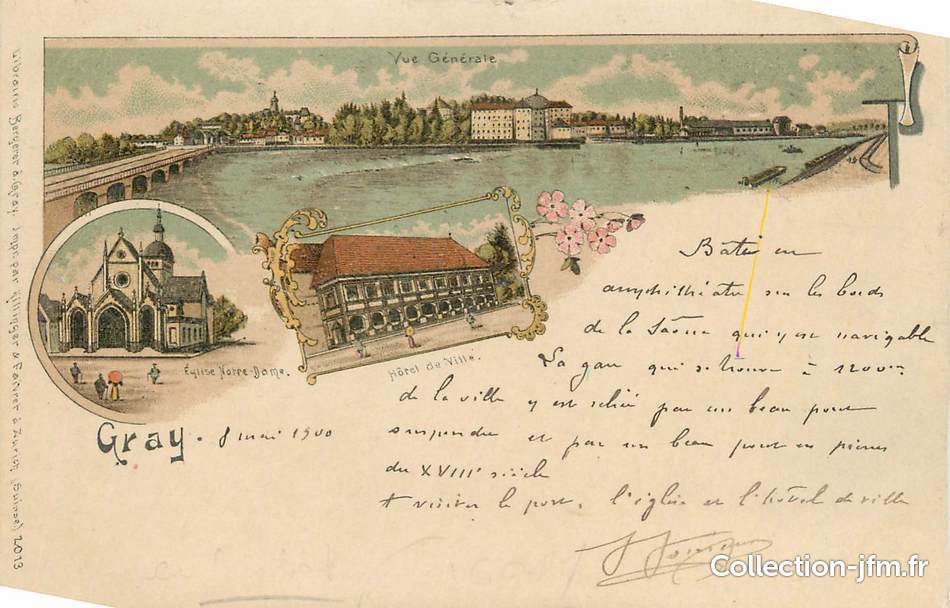 Vue Générale
Eglise Notre-Dame.
Hôtel de Ville.
Gray. 8 mai 1900
Bâtie en
amphithéatre sur les bords
de la Saône qui y est navigable
La gare qui se trouve à 1200m
de la ville y est reliée par un beau pont
suspendu et par un beau pont en pierres
du XVIIIe siècle
A visiter le port, l'église et l'hôtel de ville
Librairie Bergeret à Gray. impr. par Killinger & Faerer à Zurich, (Suisse) 2013
Collection-jfm.fr